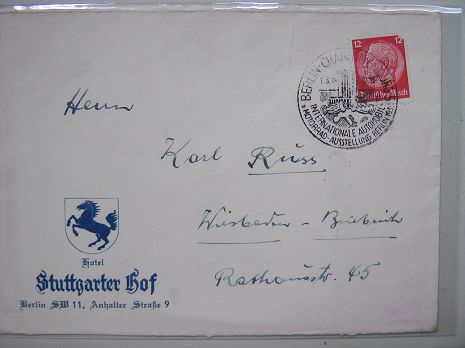 12 12
Deutsches Reich
BERLIN-CHAR
INTERNATIONALE AUTOMOBIL
MOTORRAD-AUSSTELLUNG BERLIN
Herrn
Karl Russ
Wiesbaden - Biebrich
Rathausstr. 45
Hotel
Stuttgarter Hof
Berlin SW 11, Anhalter Straße 9